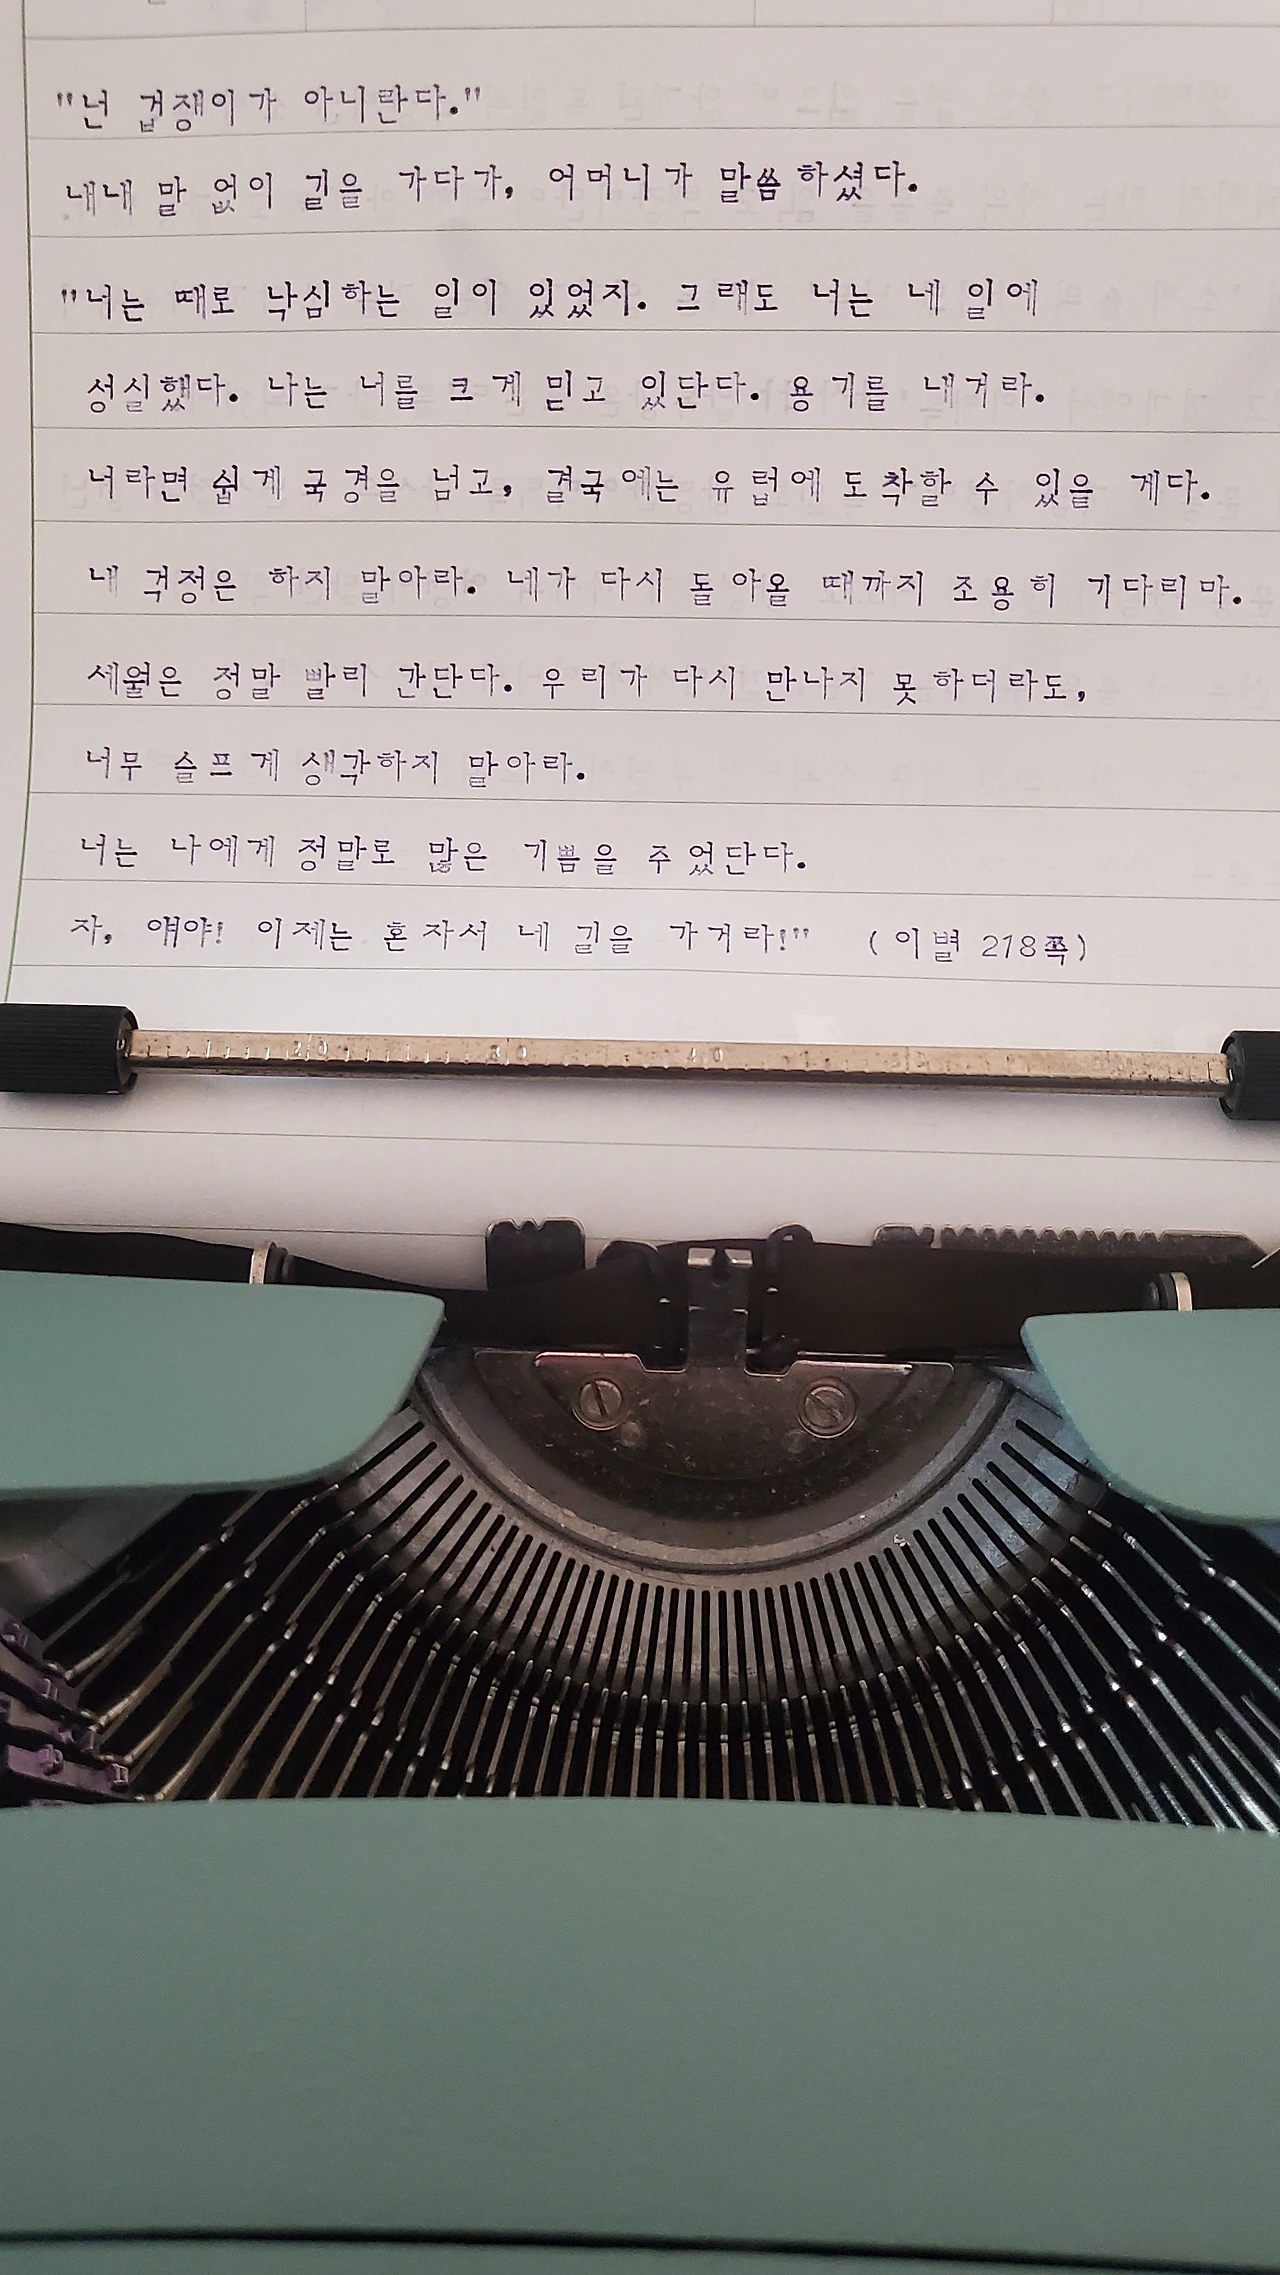 "넌 겁쟁이가 아니란다."
내내 말 없이 길을 가다가, 어머니가 말씀하셨다.
"너는 때로 낙심하는 일이 있었지. 그래도 너는 네 일에
성실했다. 나는 너를 크게 믿고 있단다. 용기를 내거라.
너라면 쉽게 국경을 넘고, 결국에는 유럽에 도착할 수 있을 게다.
내 걱정은 하지 말아라. 네가 다시 돌아올 때까지 조용히 기다리마.
세월은 정말 빨리 간단다. 우리가 다시 만나지 못하더라도,
너무 슬프게 생각하지 말아라.
너는 나에게 정말로 많은 기쁨을 주었단다.
자, 얘야! 이제는 혼자서 네 길을 가거라!" (이별 218쪽)
20 30 40 50